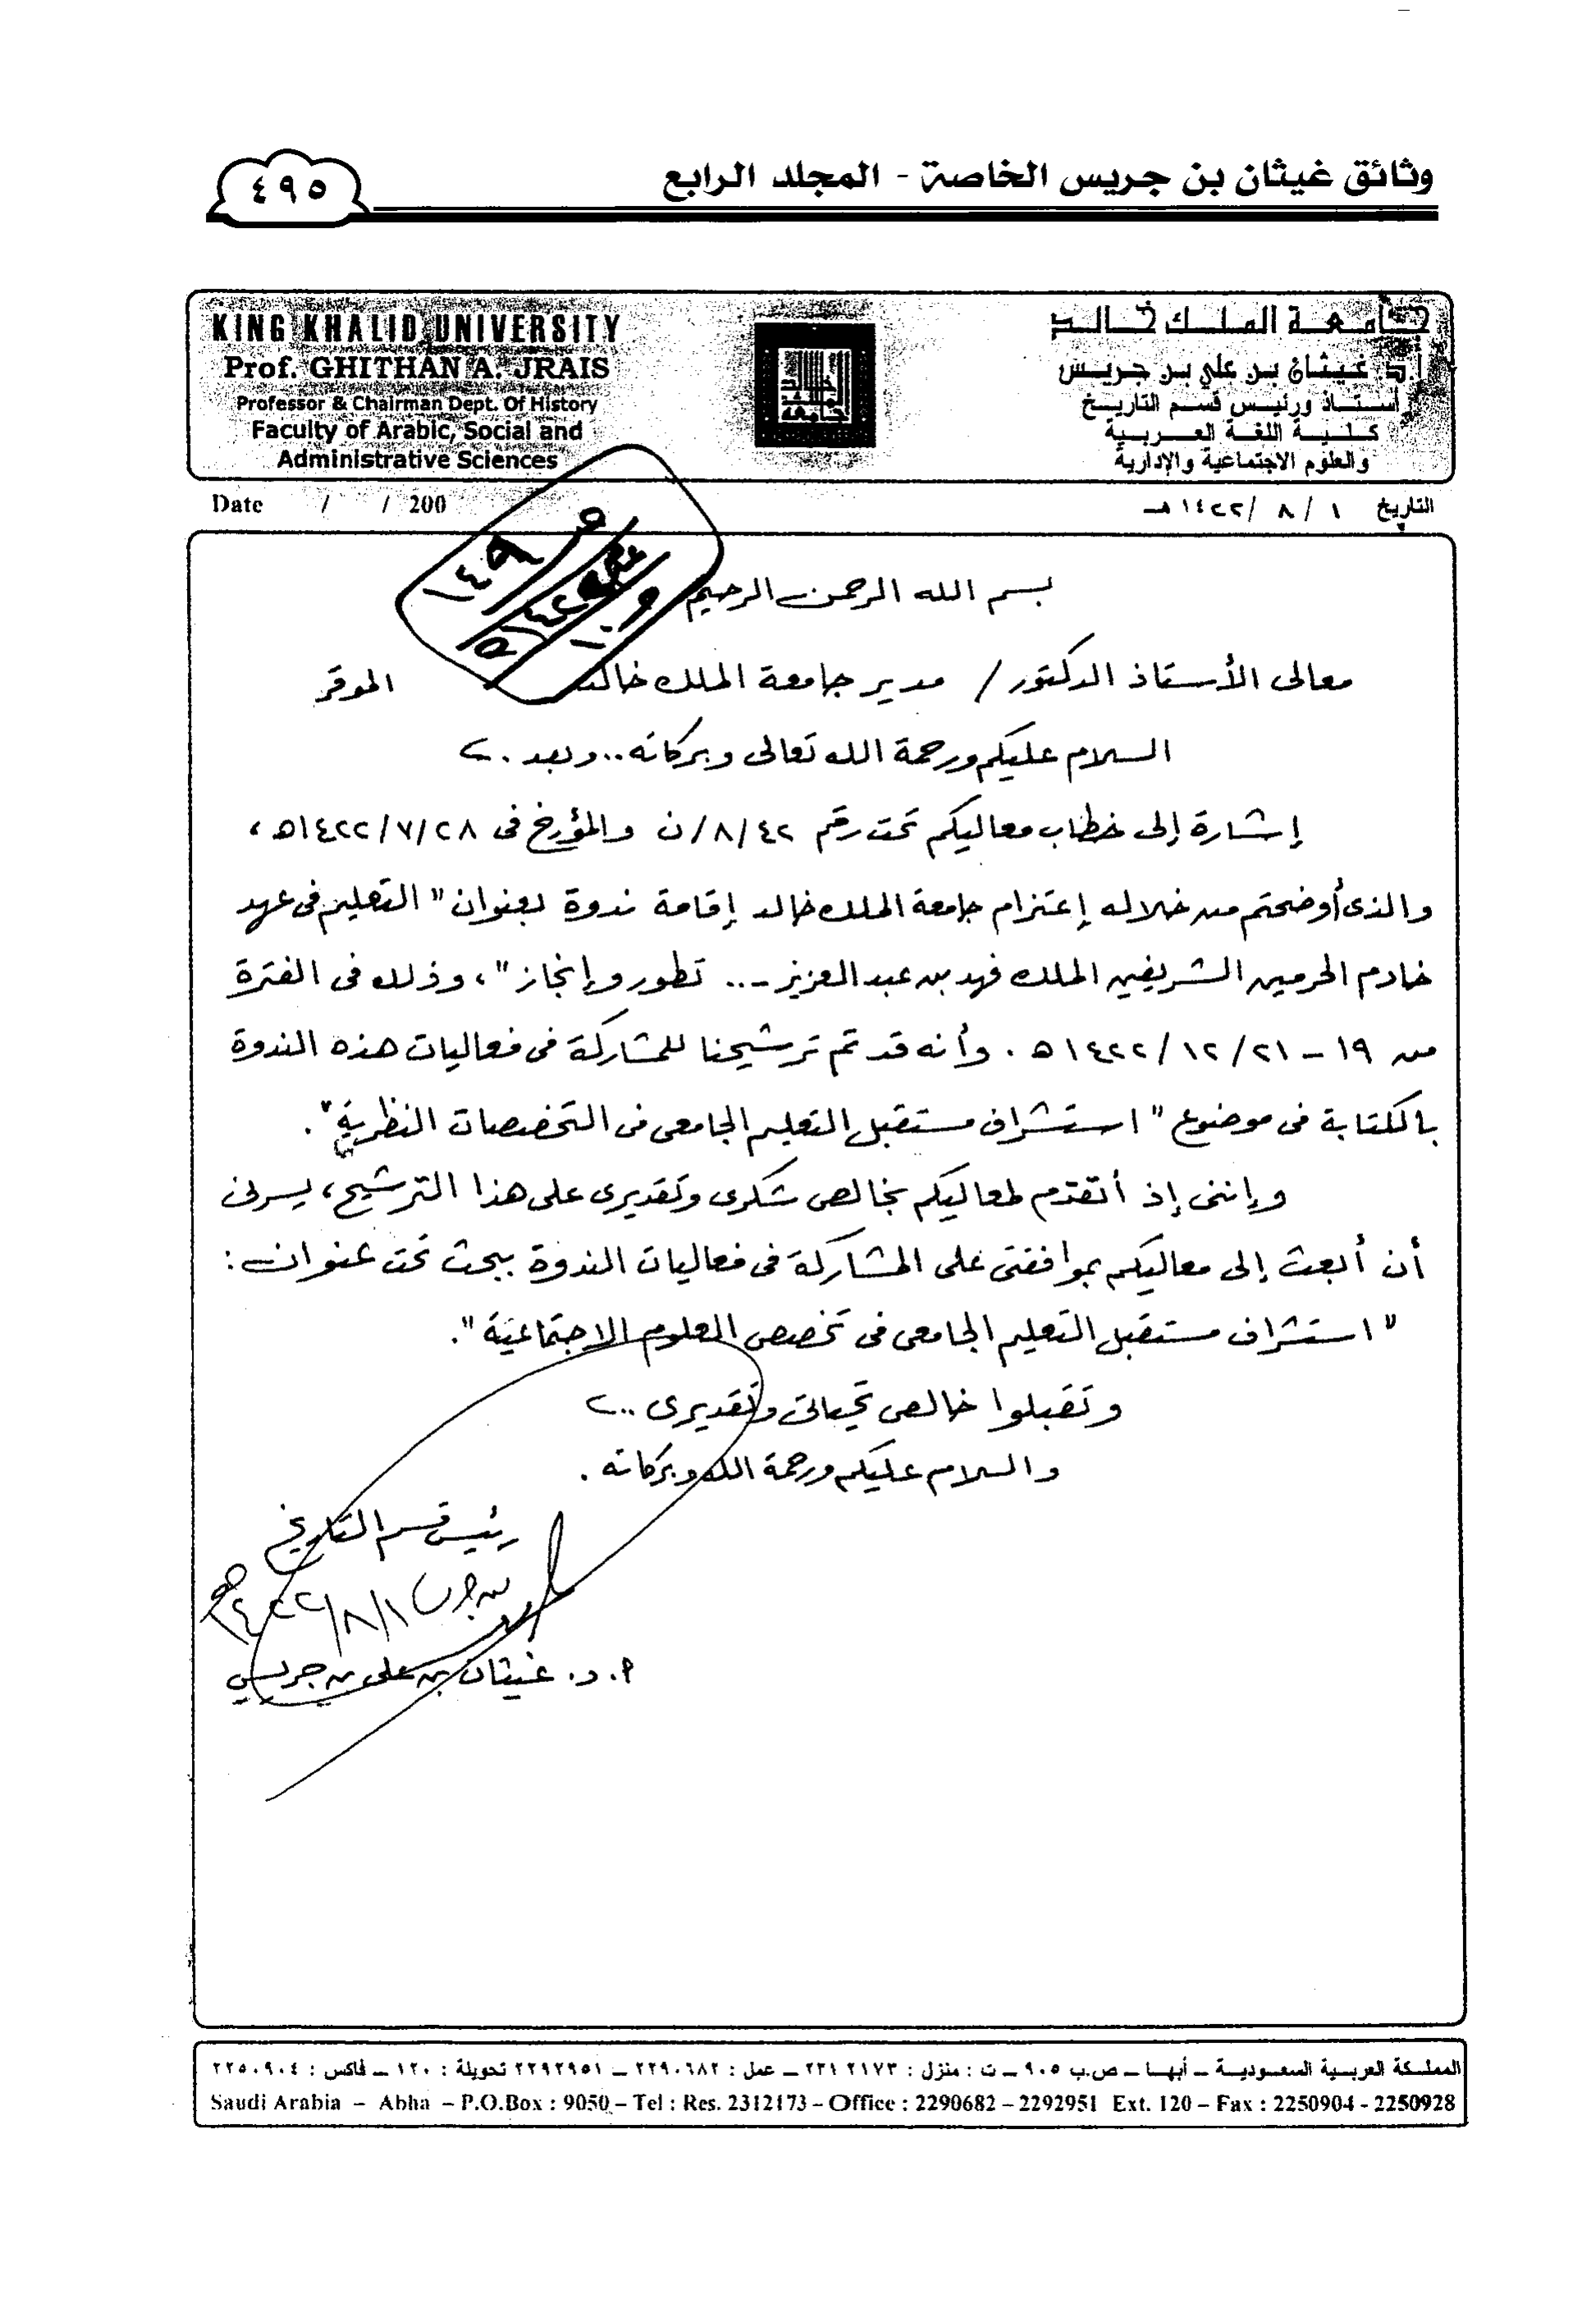 وثائق غيثان بن جريس الخاصة - المجلد الرابع
٤٩٥
KING KHALID UNIVERSITY
Prof. GHITHAN A. JRAIS
Professor & Chairman Dept. Of History
Faculty of Arabic, Social and
Administrative Sciences
جامعة الملك خالد
أ.د. غيثان بن علي بن جريس
أستاذ ورئيس قسم التاريخ
كلية اللغة العربية
والعلوم الاجتماعية والإدارية
Date / / 200
التاريخ ١ / ٨ / ١٤٢٢ هـ
١٤٩
بسم الله الرحمن الرحيم
معالى الأستاذ الدكتور / مدير جامعة الملك خالد الموقر
السلام عليكم ورحمة الله تعالى وبركاته .. وبعد ..
إشارة إلى خطاب معاليكم تحت رقم ٨/٤٢/ن والمؤرخ فى ١٤٢٢/٧/٢٨هـ ،
والذى أوضحتم من خلاله إعتزام جامعة الملك خالد إقامة ندوة بعنوان " التعليم فى عهد
خادم الحرمين الشريفين الملك فهد بن عبد العزيز - .. تطور وإنجاز " ، وذلك فى الفترة
من ١٩ - ١٤٢٢/١٢/٢١هـ . وأنه قد تم ترشيحنا للمشاركة فى فعاليات هذه الندوة
بالكتابة فى موضوع " استشراف مستقبل التعليم الجامعى فى التخصصات النظرية " .
وإننى إذ أتقدم لمعاليكم بخالص شكرى وتقديرى على هذا الترشيح ، يسرنى
أن أبعث إلى معاليكم بموافقتى على المشاركة فى فعاليات الندوة ببحث تحت عنوان :
" استشراف مستقبل التعليم الجامعى فى تخصص العلوم الاجتماعية " .
وتقبلوا خالص تحياتى وتقديرى ..
والسلام عليكم ورحمة الله وبركاته .
رئيس قسم التاريخ
١٤٢٢/٨/١هـ
أ. د. غيثان بن على بن جريس
المملكة العربية السعودية – أبها – ص.ب ٩٠٥ – ت : منزل : ٢٣١٢١٧٣ – عمل : ٢٢٩٠٦٨٢ – ٢٢٩٢٩٥١ تحويلة : ١٢٠ – فاكس : ٢٢٥٠٩٠٤
Saudi Arabia – Abha – P.O.Box : 9050 – Tel : Res. 2312173 – Office : 2290682 – 2292951 Ext. 120 – Fax : 2250904 - 2250928